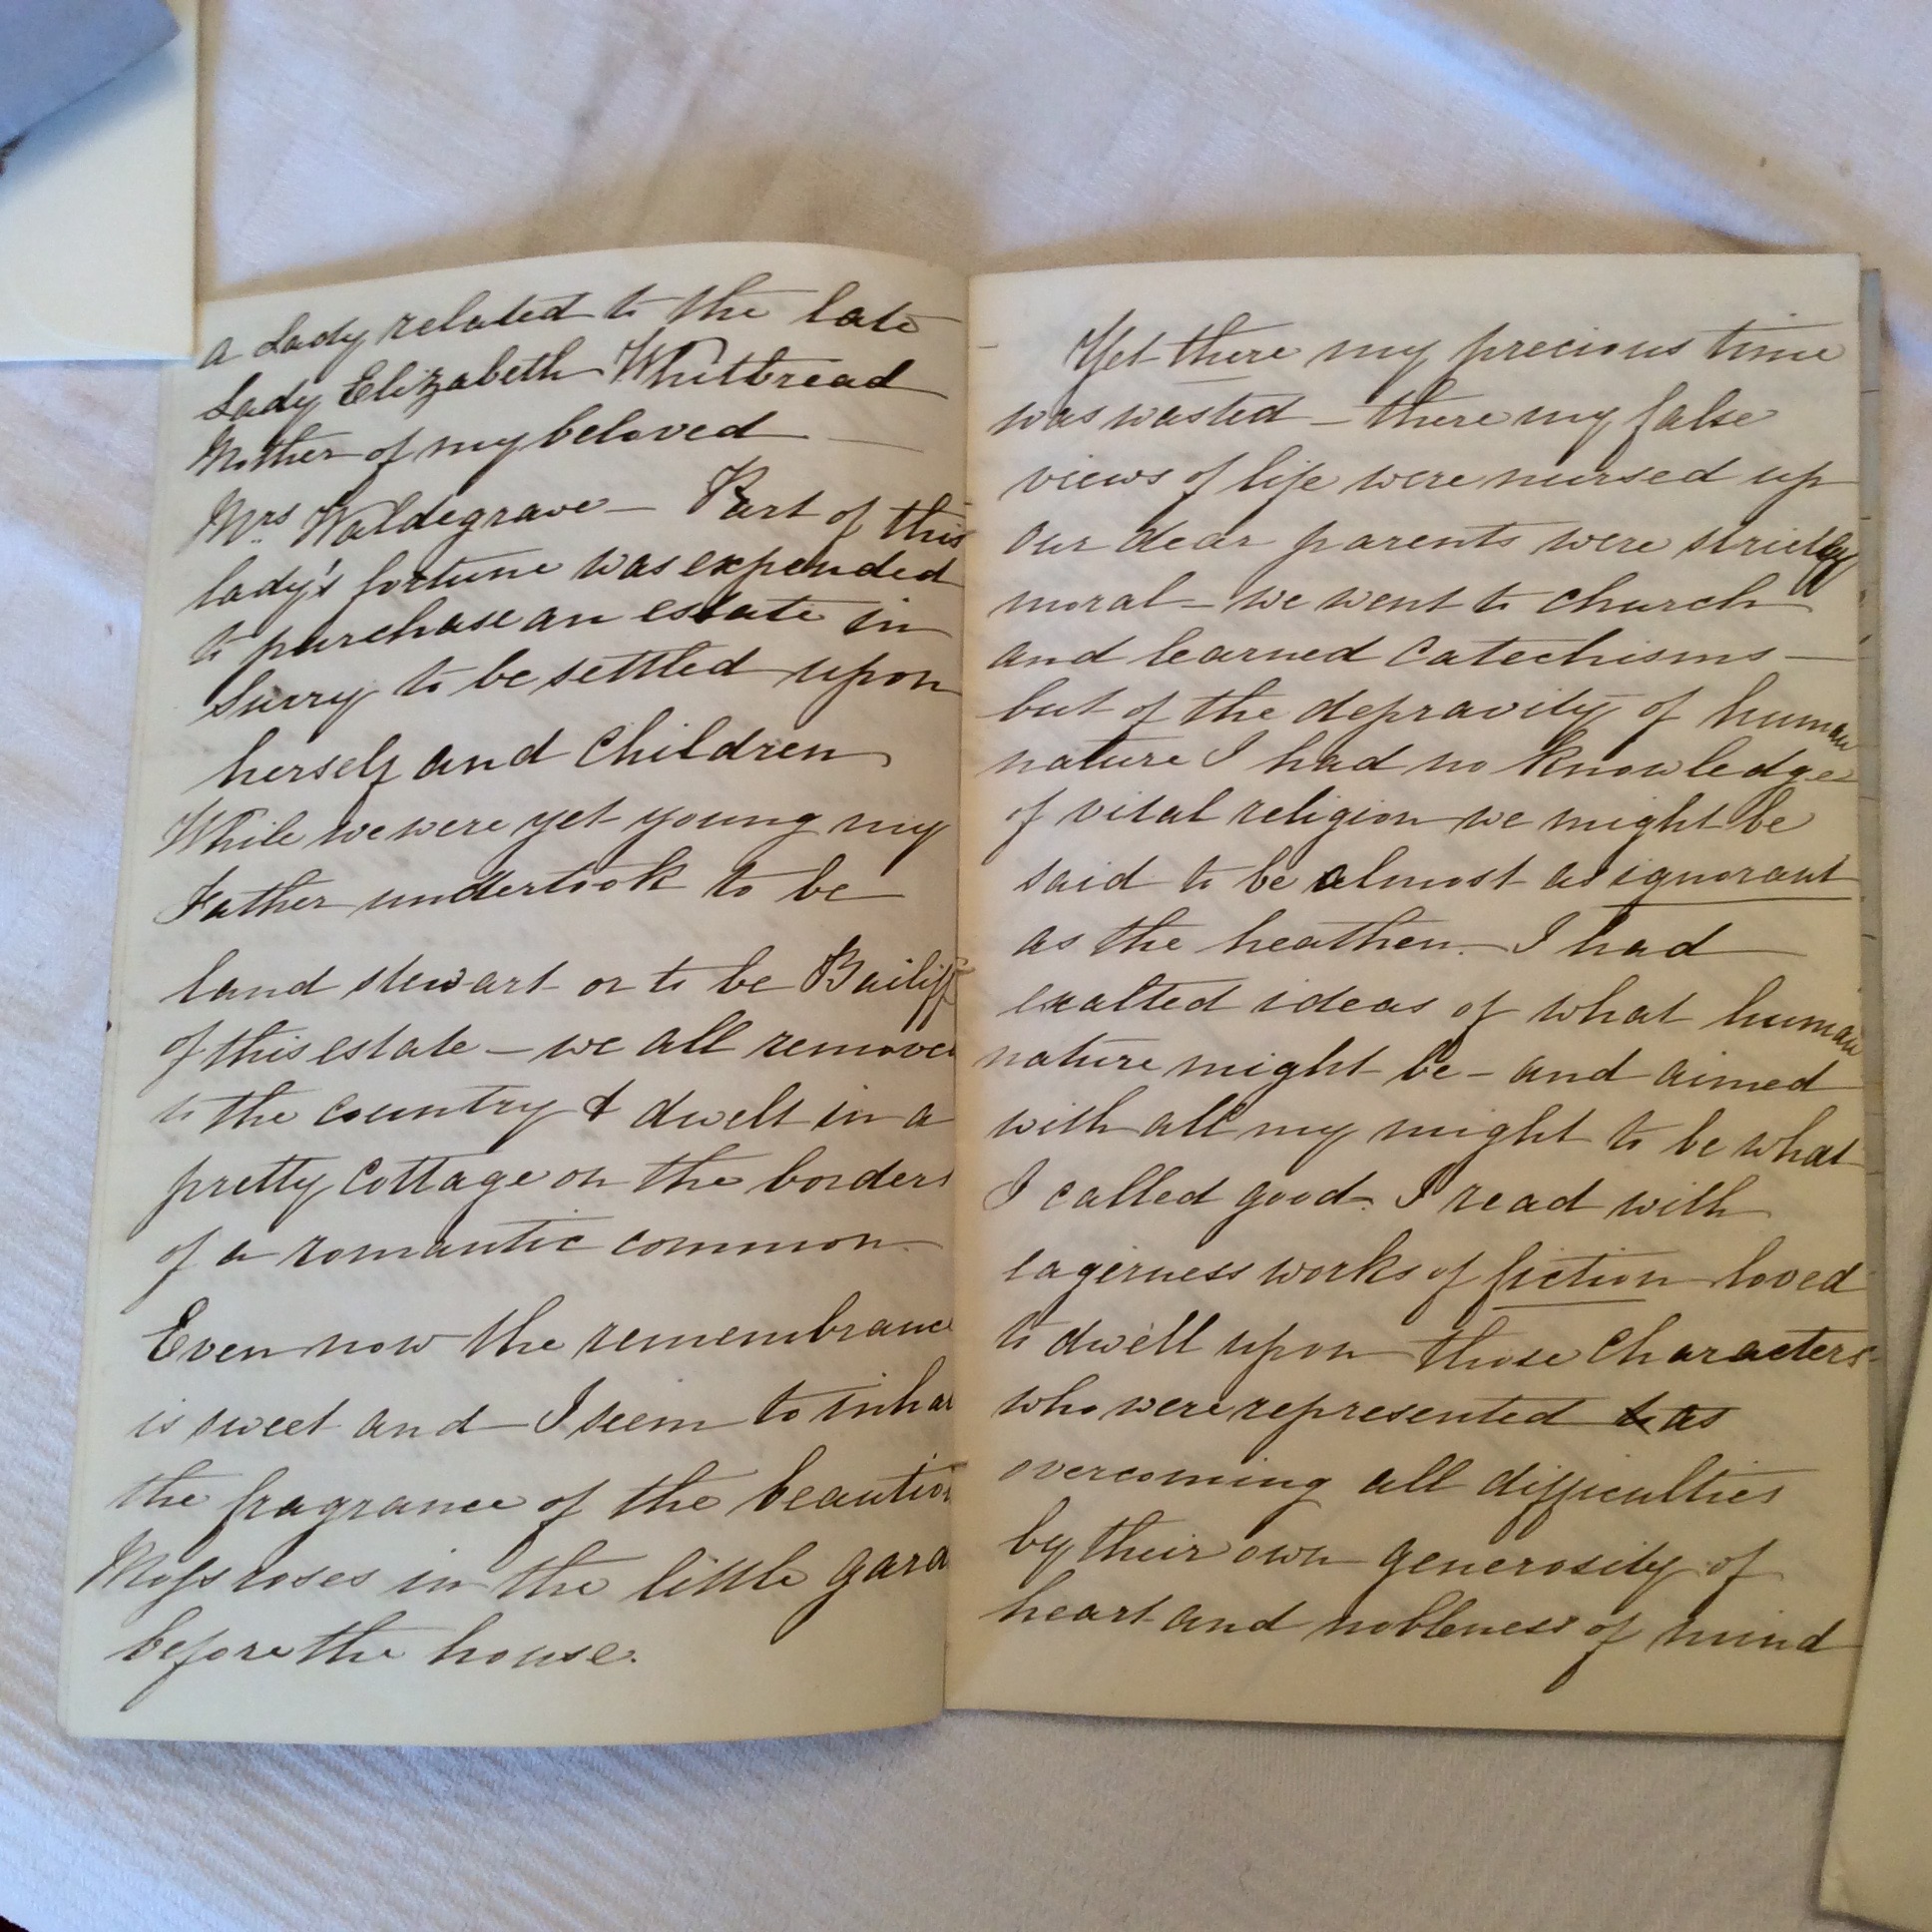 a Lady related to the late
Lady Elizabeth Whitbread
Mother of my beloved —
Mrs Waldegrave — Part of this
lady's fortune was expended
to purchase an estate in
Surry to be settled upon
herself and Children
While we were yet young my
Father undertook to be
land stewart or to be Bailiff
of this estate — we all remove
to the country & dwelt in a
pretty Cottage on the borders
of a romantic common.
Even now the remembrance
is sweet and I seem to inha
the fragrance of the beautio
Moss roses in the little gard
before the house.
Yet there my precious time
was wasted — there my false
views of life were nursed up
our dear parents were strictly
moral — we went to church
and learned Catechisms —
but of the depravity of human
nature I had no knowledge
of vital religion we might be
said to be almost as ignorant
as the heathen. I had
exalted ideas of what human
nature might be — and aimed
with all my might to be what
I called good. I read with
eagerness works of fiction loved
to dwell upon those Characters
who were represented as
overcoming all difficulties
by their own generosity of
heart and nobleness of mind